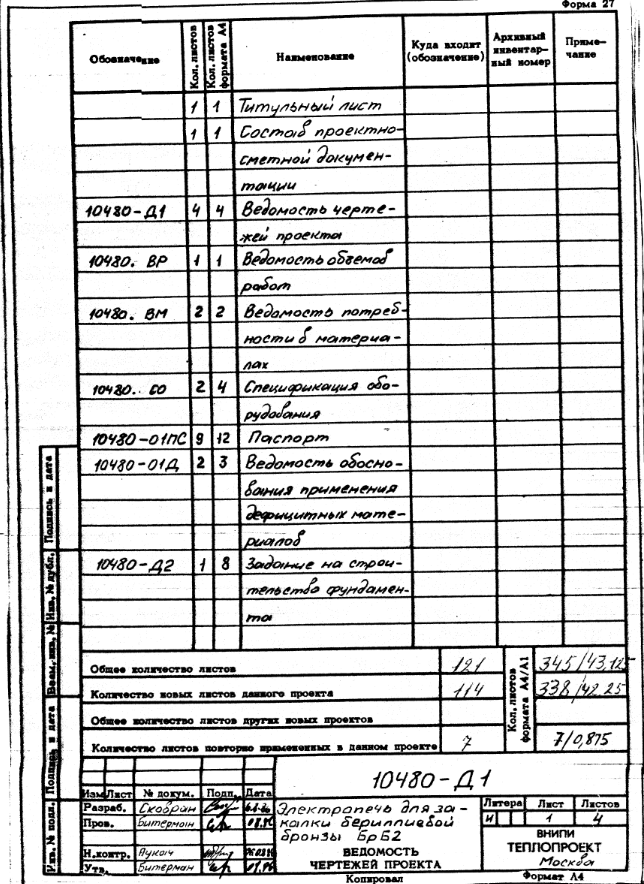 Форма 27
Обозначение Кол. листов Кол. листов формата А4 Наименование Куда входит (обозначение) Архивный инвентарный номер Примечание
1 1 Титульный лист
1 1 Состав проектно-
сметной докумен-
тации
10480-Д1 4 4 Ведомость черте-
жей проекта
10480. ВР 1 1 Ведомость объемов
работ
10480. ВМ 2 2 Ведомость потреб-
ности в материа-
лах
10480. СО 2 4 Спецификация обо-
рудования
10480-01ПС 9 12 Паспорт
10480-01Д 2 3 Ведомость обосно-
вания применения
дефицитных мате-
риалов
10480-Д2 1 8 Задание на строи-
тельство фундамен-
та
Общее количество листов 121 Кол. листов формата А4/А1 345/43,125
Количество новых листов данного проекта 114 338/42.25
Общее количество листов других новых проектов
Количество листов повторно примененных в данном проекте 7 7/0,875
Инв. № подл. Подпись и дата Взам. инв. № Инв. № дубл. Подпись и дата
10480-Д1
Изм Лист № докум. Подп. Дата
Разраб. Скобран
Пров. Битерман
Н.контр.
Утв. Битерман
Электропечь для за-
калки бериллиевой
бронзы БрБ2
ВЕДОМОСТЬ
ЧЕРТЕЖЕЙ ПРОЕКТА
Литера Лист Листов
И 1 4
ВНИПИ
ТЕПЛОПРОЕКТ
Москва
Копировал Формат А4